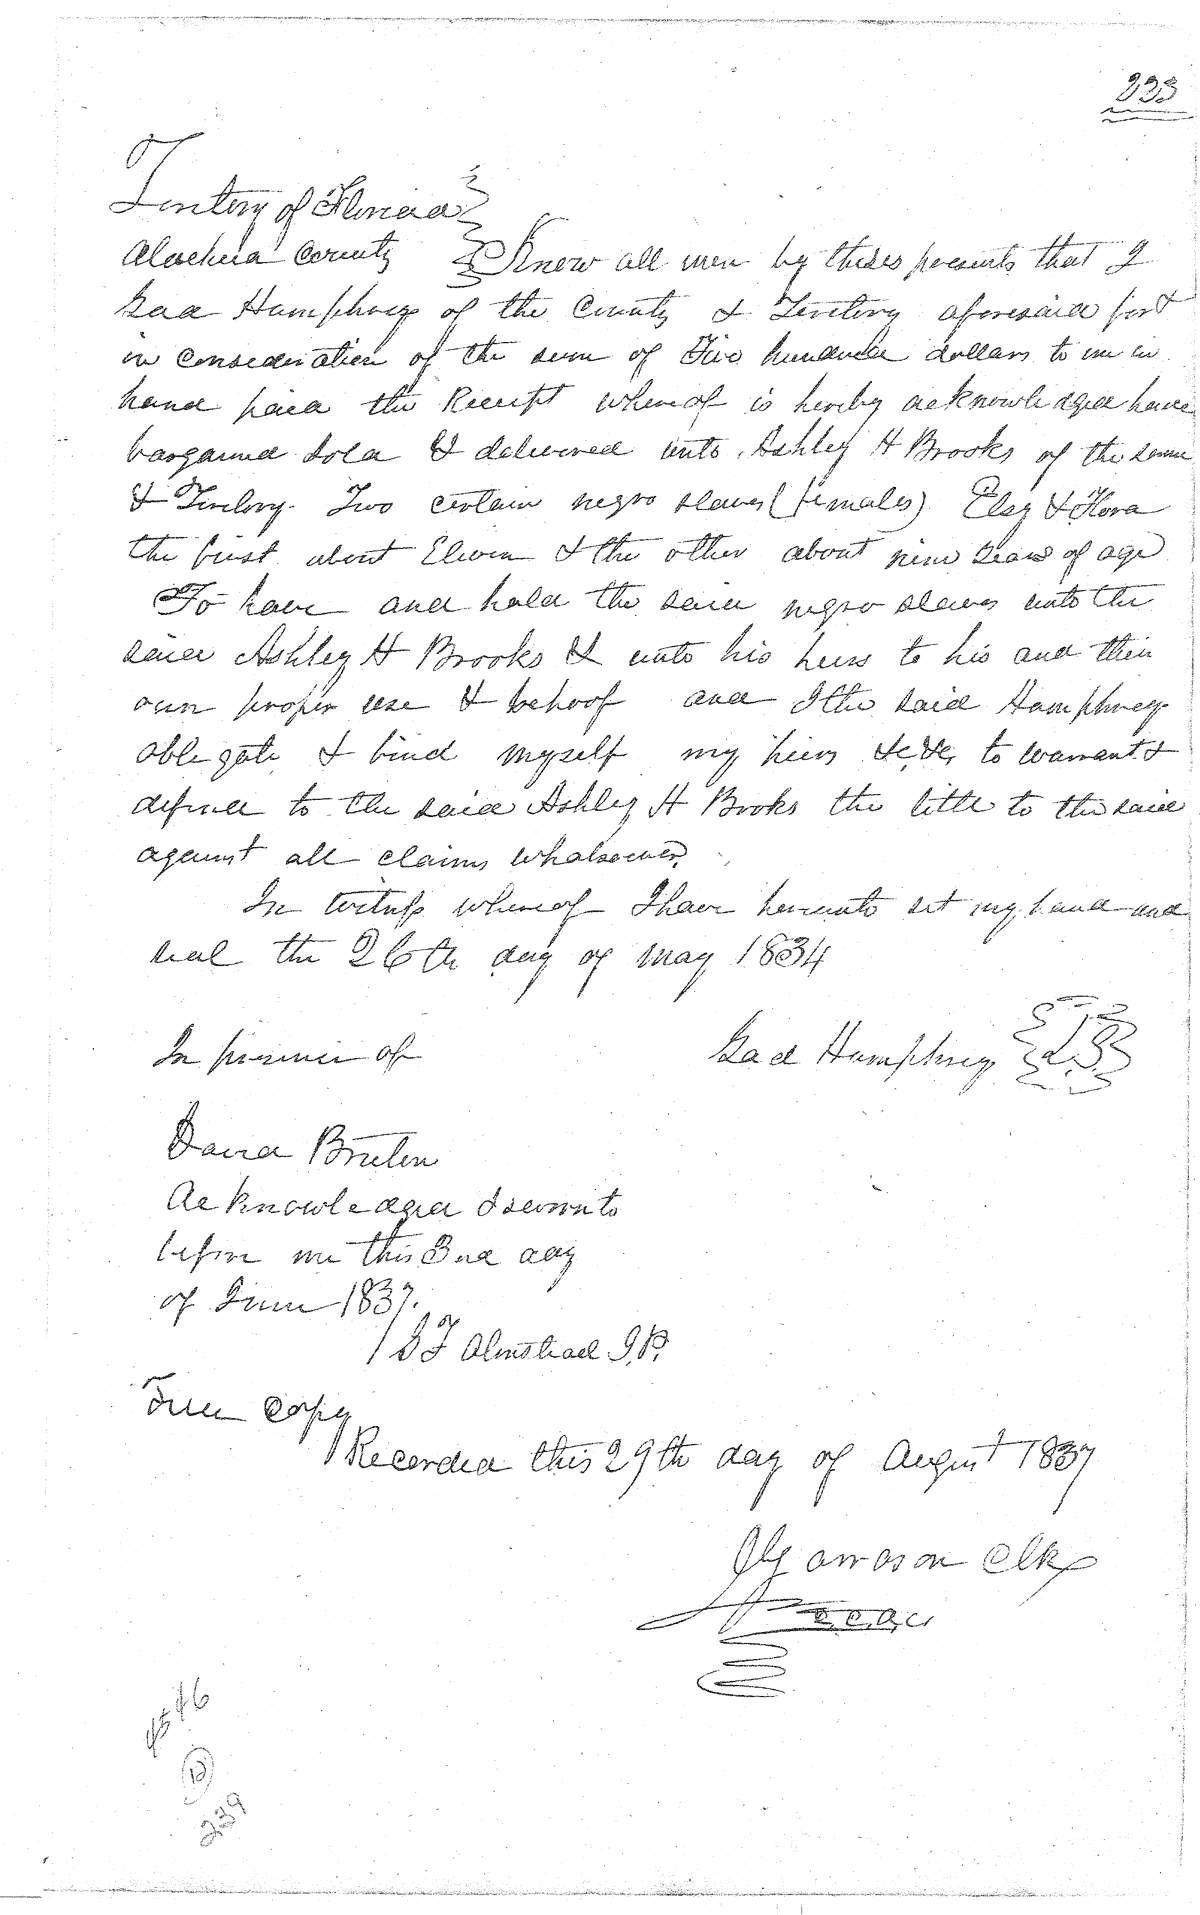 333
Territory of Florida
Alachua County Know all men by these presents that I
Gad Humphrey of the County & Territory aforesaid for &
in consideration of the sum of Five hundred dollars to me in
hand paid the Receipt whereof is hereby acknowledged have
bargained sold & delivered unto Ashley H Brooks of the same
& Territory. Two certain negro slaves (females) Elsy & Flora
the first about Eleven & the other about nine years of age
To have and hold the said negro slaves unto the
said Ashley H Brooks & unto his heirs to his and their
own proper use & behoof and I the said Humphrey
obligate & bind myself my heirs &c &c, to warrant &
defend to the said Ashley H Brooks the title to the said
against all claims whatsoever.
In witness whereof I have hereunto set my hand and
seal the 26th day of May 1834
In presence of Gad Humphrey LS
David Bruton
Acknowledged & sworn to
before me this 3rd day
of June 1837.
Olmstead J.P.
True copy
Recorded this 29th day of August 1837
Clk
239